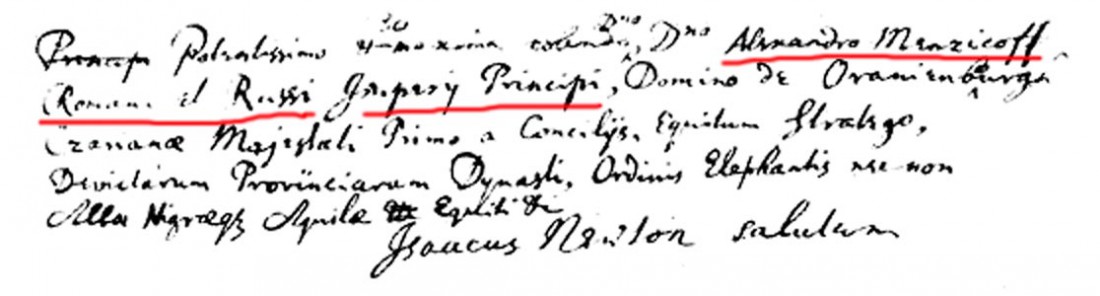 Principi Potentissimo colendo, Dno Alexandro Menzicoff
Romani et Russi Imperij Principi, Domino de Oranienburga
Czarianæ Majestati Primo a Concilijs, Equitum Stratego,
Devictarum Provinciarum Dynasti, Ordinis Elephantis nec non
Albæ Nigræq Aquilæ Equiti &c
Isaacus Newton salutem